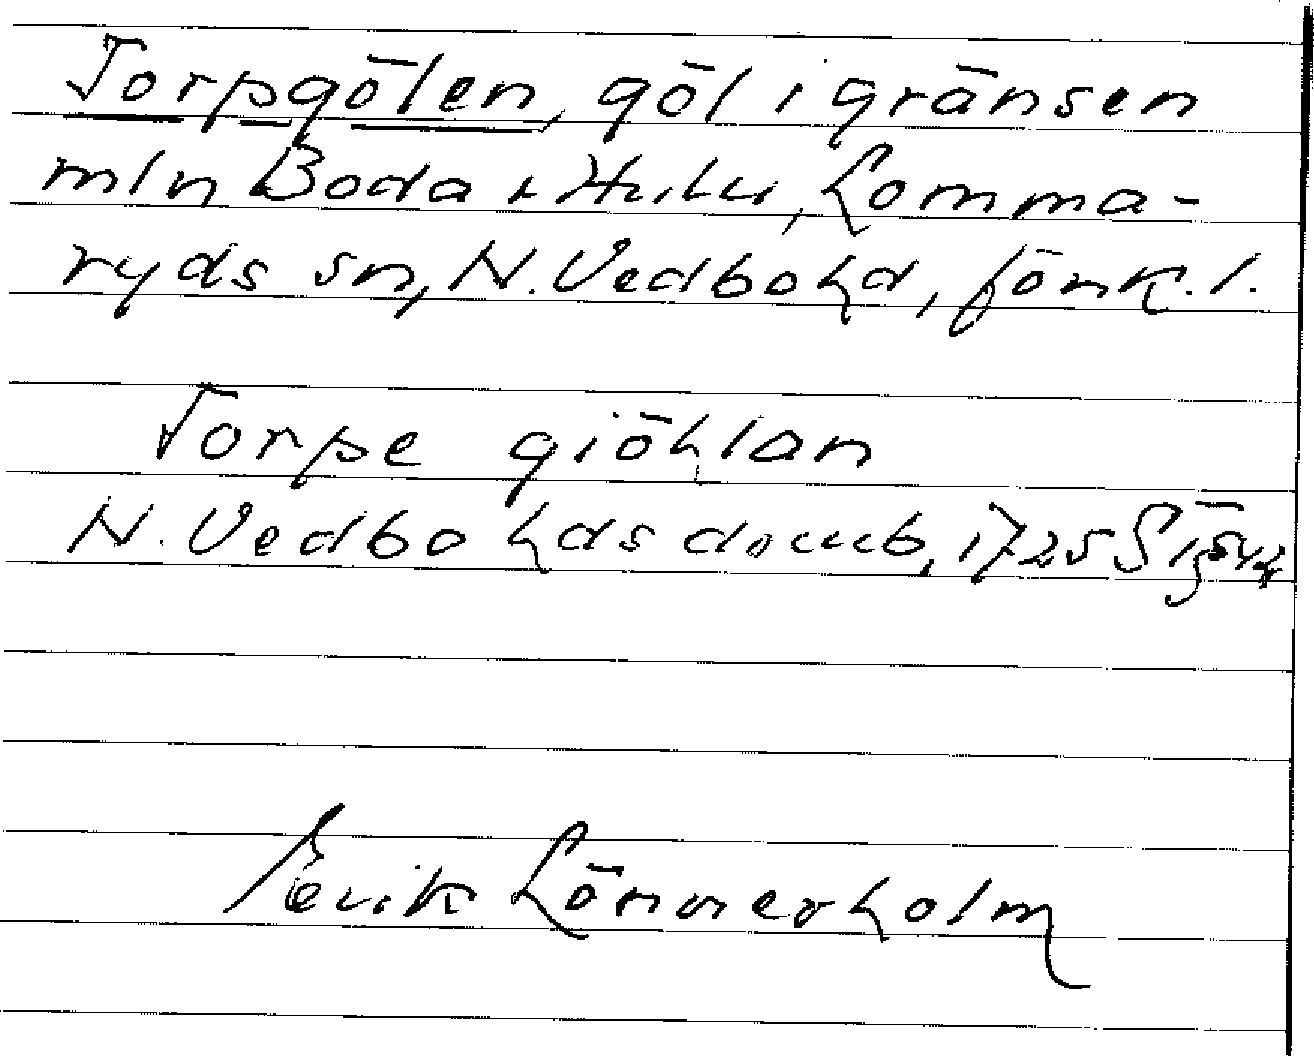 Torpgölen, göl i gränsen
mln Boda + Hulu, Lomma-
ryds sn, N. Vedbo hd, Jönk. l.
Torpe giöhlan
N. Vedbo hds domb, 1725 §
Erik Lönnerholm